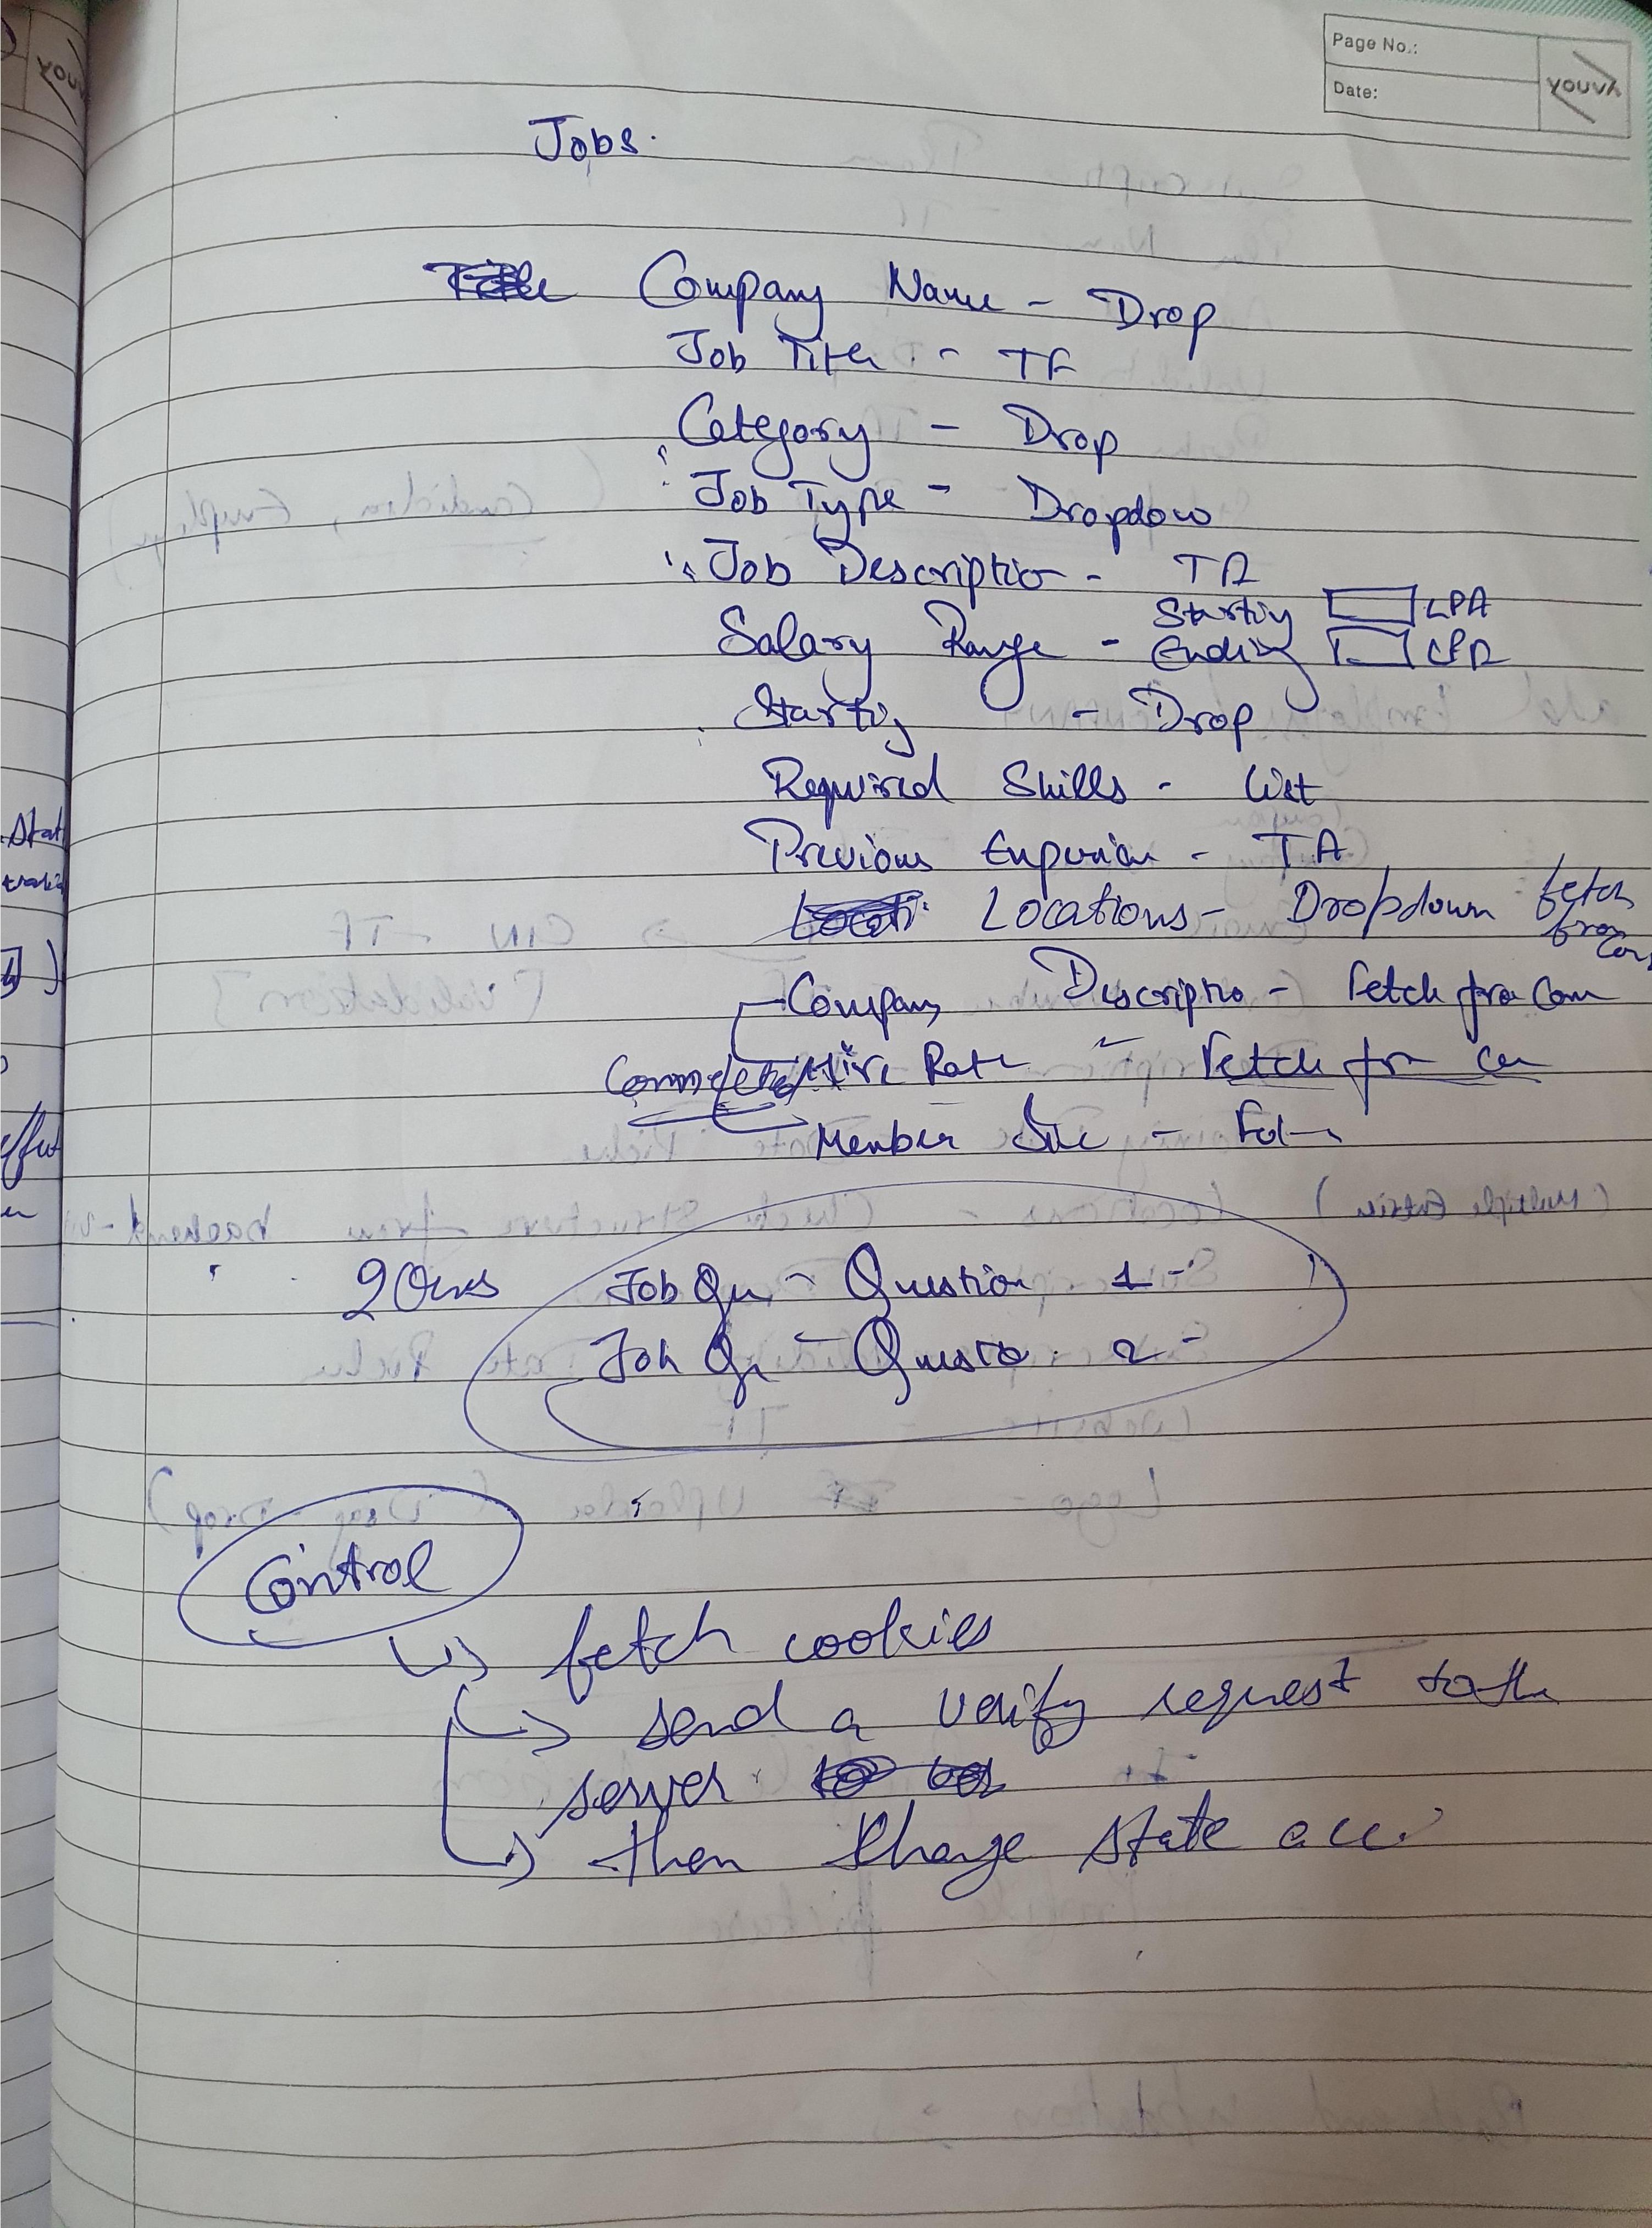 Page No.:
Date:
youvA
Jobs.
Company Name - Drop
Job Title - TF
Category - Drop
Job Type - Dropdow
Job Descriptio - TA
Salary Range - Starting LPA
Ending LPA
Starting - Drop
Required Skills - List
Previous - TA
Locations - Dropdown fetch
from
Company Descriptio - Fetch from Com
Hire Rate - Fetch
Member
Job Qu - Question 1 -
Job Qu - Questio 2 -
Control
fetch cookies
send a verify request to the
server
then change state acc.